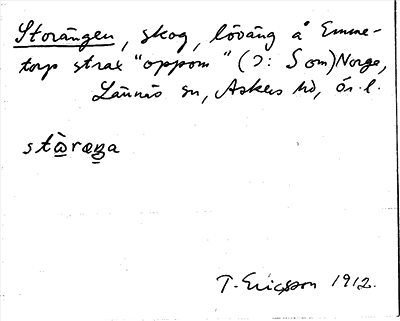 Storängen, skog, löväng å Emme-
torp strax "oppom" (ɔ: S om) Norge,
Lännäs sn, Askers hd, ör. l.
stὼraŋa
T. Ericsson 1912.